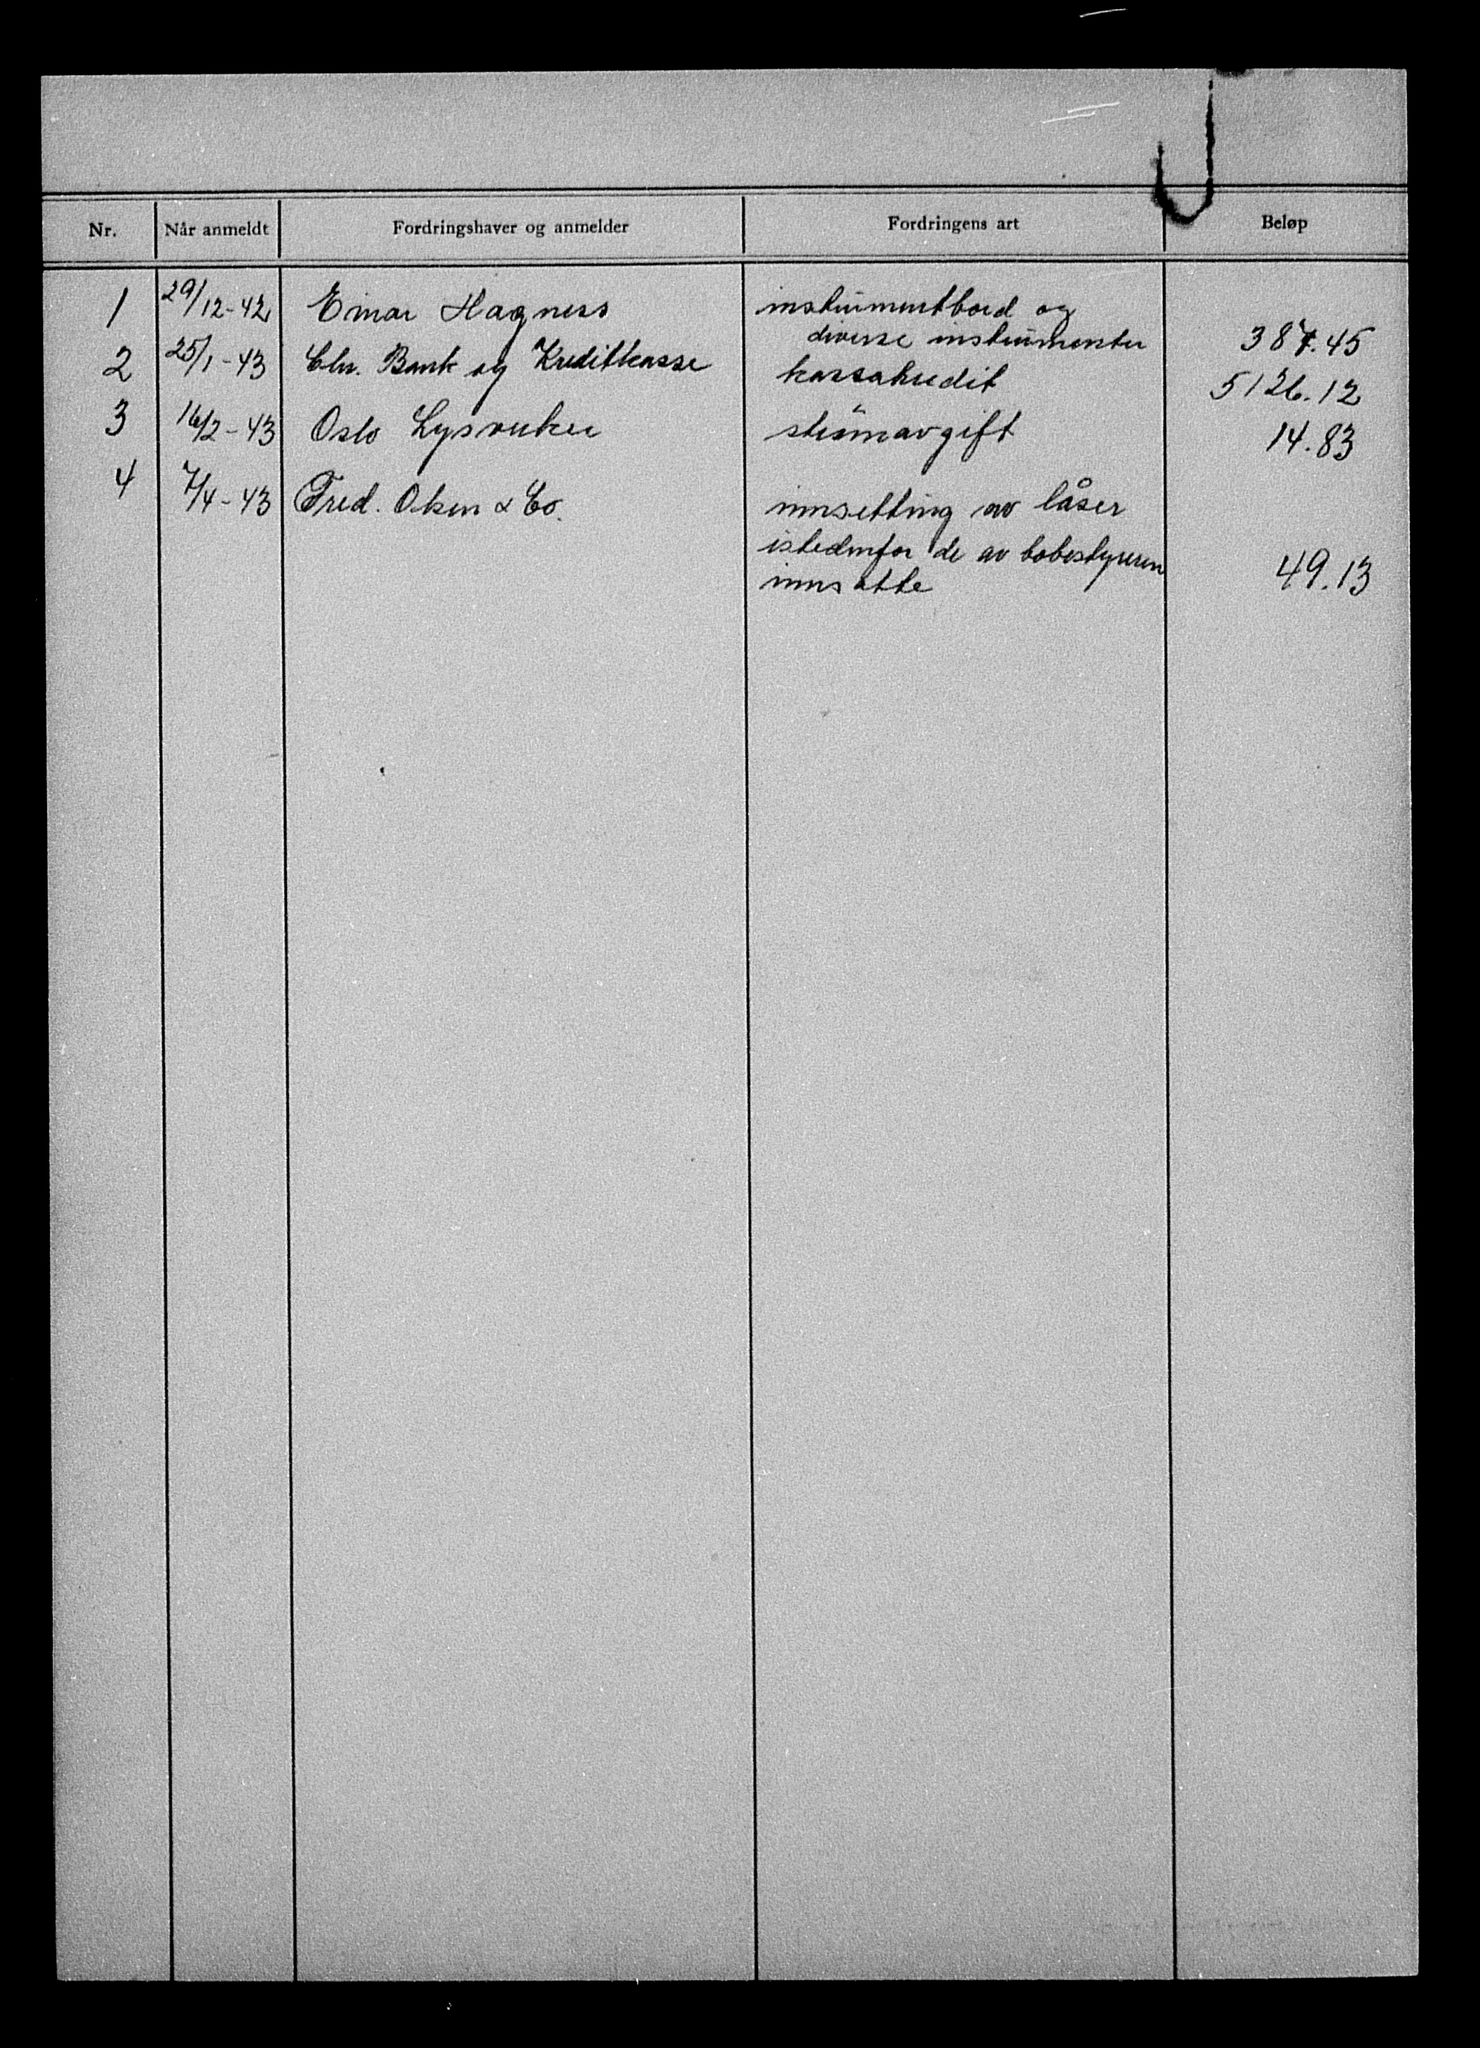 Nr. Når anmeldt Fordringshaver og anmelder Fordringens art Beløp
1 29/12-42 Einar Hagness instrumentbord og
diverse instrumenter 387.45
2 25/1-43 Chr. Bank og Kreditkasse kassakredit 5126.12
3 16/2-43 Oslo Lysverker strømavgift 14.83
4 7/4-43 Fred. Olsen & Co. innsetting av låser
istedenfor de av bobestyreren
innsatte 49.13